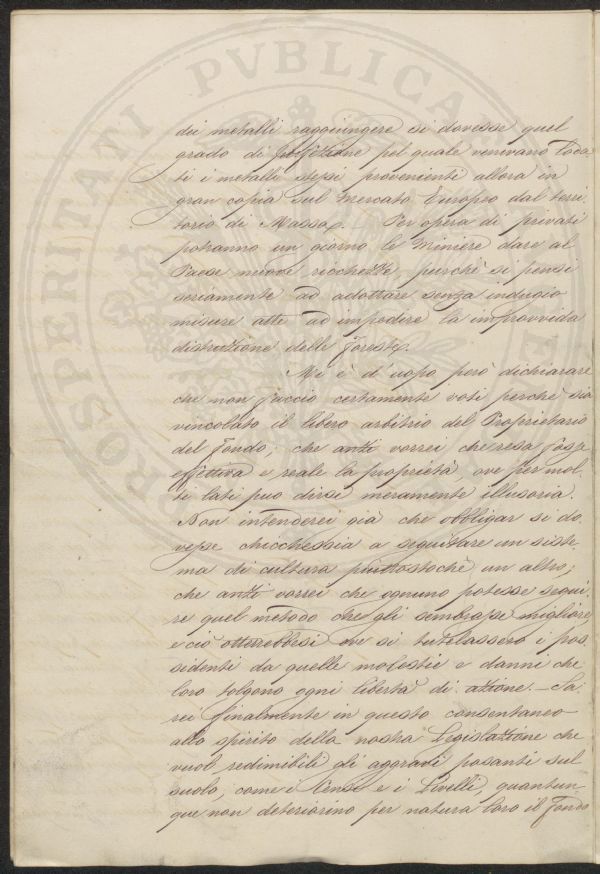 PROSPERITATI PVBLICAE
dei metalli raggiungere si dovesse quel
grado di perfezione pel quale venivano
ti i metalli stessi provenienti allora in
gran copia sul mercato Europeo dal terri
torio di Massa. — Per opera di privati
potranno un giorno le Miniere dare al
Paese nuove ricchezze, perchè si pensi
seriamente ad adottare senza indugio
misure atte ad impedire la improvvida
distruzione delle foreste.
Mi è d'uopo però dichiarare
che non faccio certamente voti perchè sia
vincolato il libero arbitrio del Proprietario
del fondo; che anzi vorrei che resa fosse
effettiva e reale la proprietà, ove per mol
ti lati può dirsi meramente illusoria.
Non intenderei già che obbligar si do
vesse chicchessia a seguitare un siste
ma di cultura piuttostochè un altro;
che anzi vorrei che ognuno potesse segui
re quel metodo che gli sembrasse migliore
e ciò otterrebbesi ove si tutelassero i pos
sidenti da quelle molestie e danni che
loro tolgono ogni libertà di azione. — Sa
rei finalmente in questo consentaneo
allo spirito della nostra Legislazione che
vuol redimibili gli aggravi posanti sul
suolo, come i Censi e i Livelli, quantun
que non deteriorino per natura loro il fondo